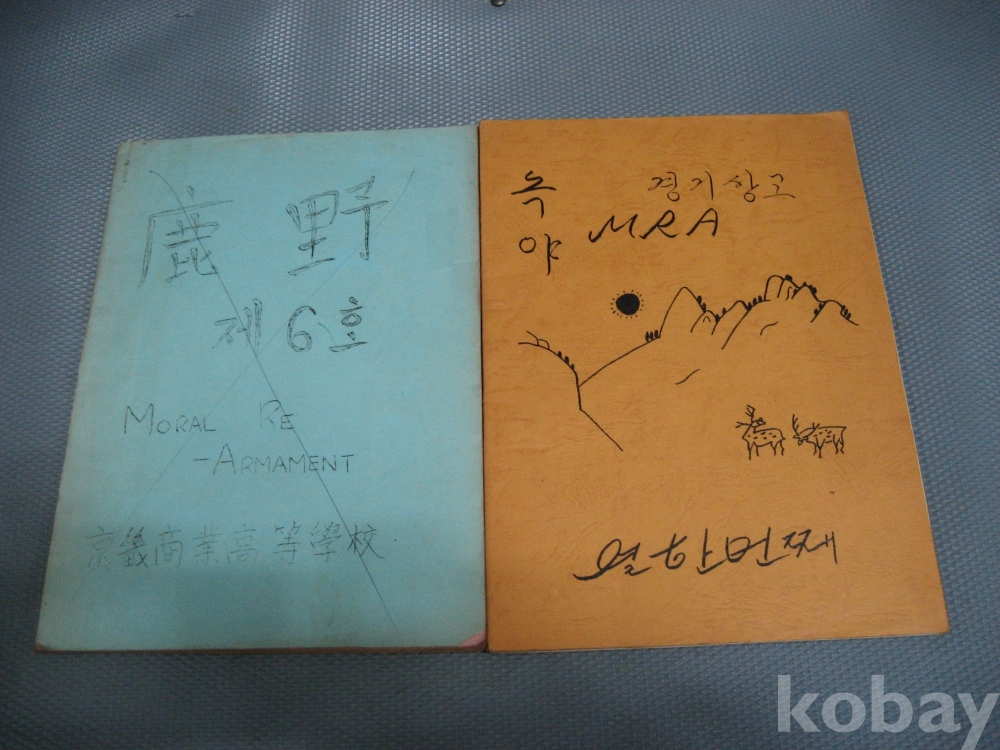 鹿野
제 6호
MORAL RE
-ARMAMENT
京畿商業高等學校
녹야
경기상고
MRA
열한번째
kobay